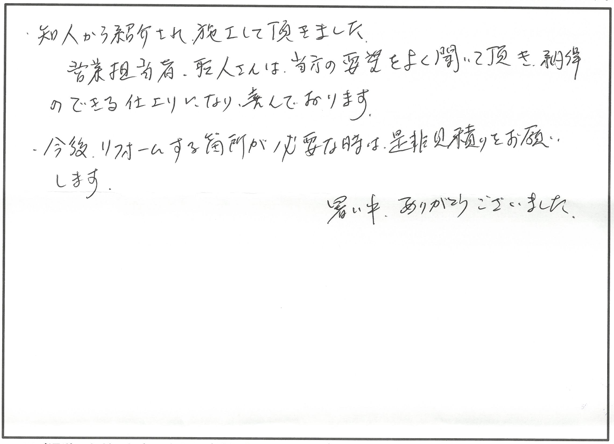 ・知人から紹介され、施工して頂きました。
営業担当者、匠人さんは、当方の要望をよく聞いて頂き、納得
のできる仕上りになり、喜んでおります。
・今後、リフォームする箇所が必要な時は、是非見積りをお願い
します。
暑い中、ありがとうございました。